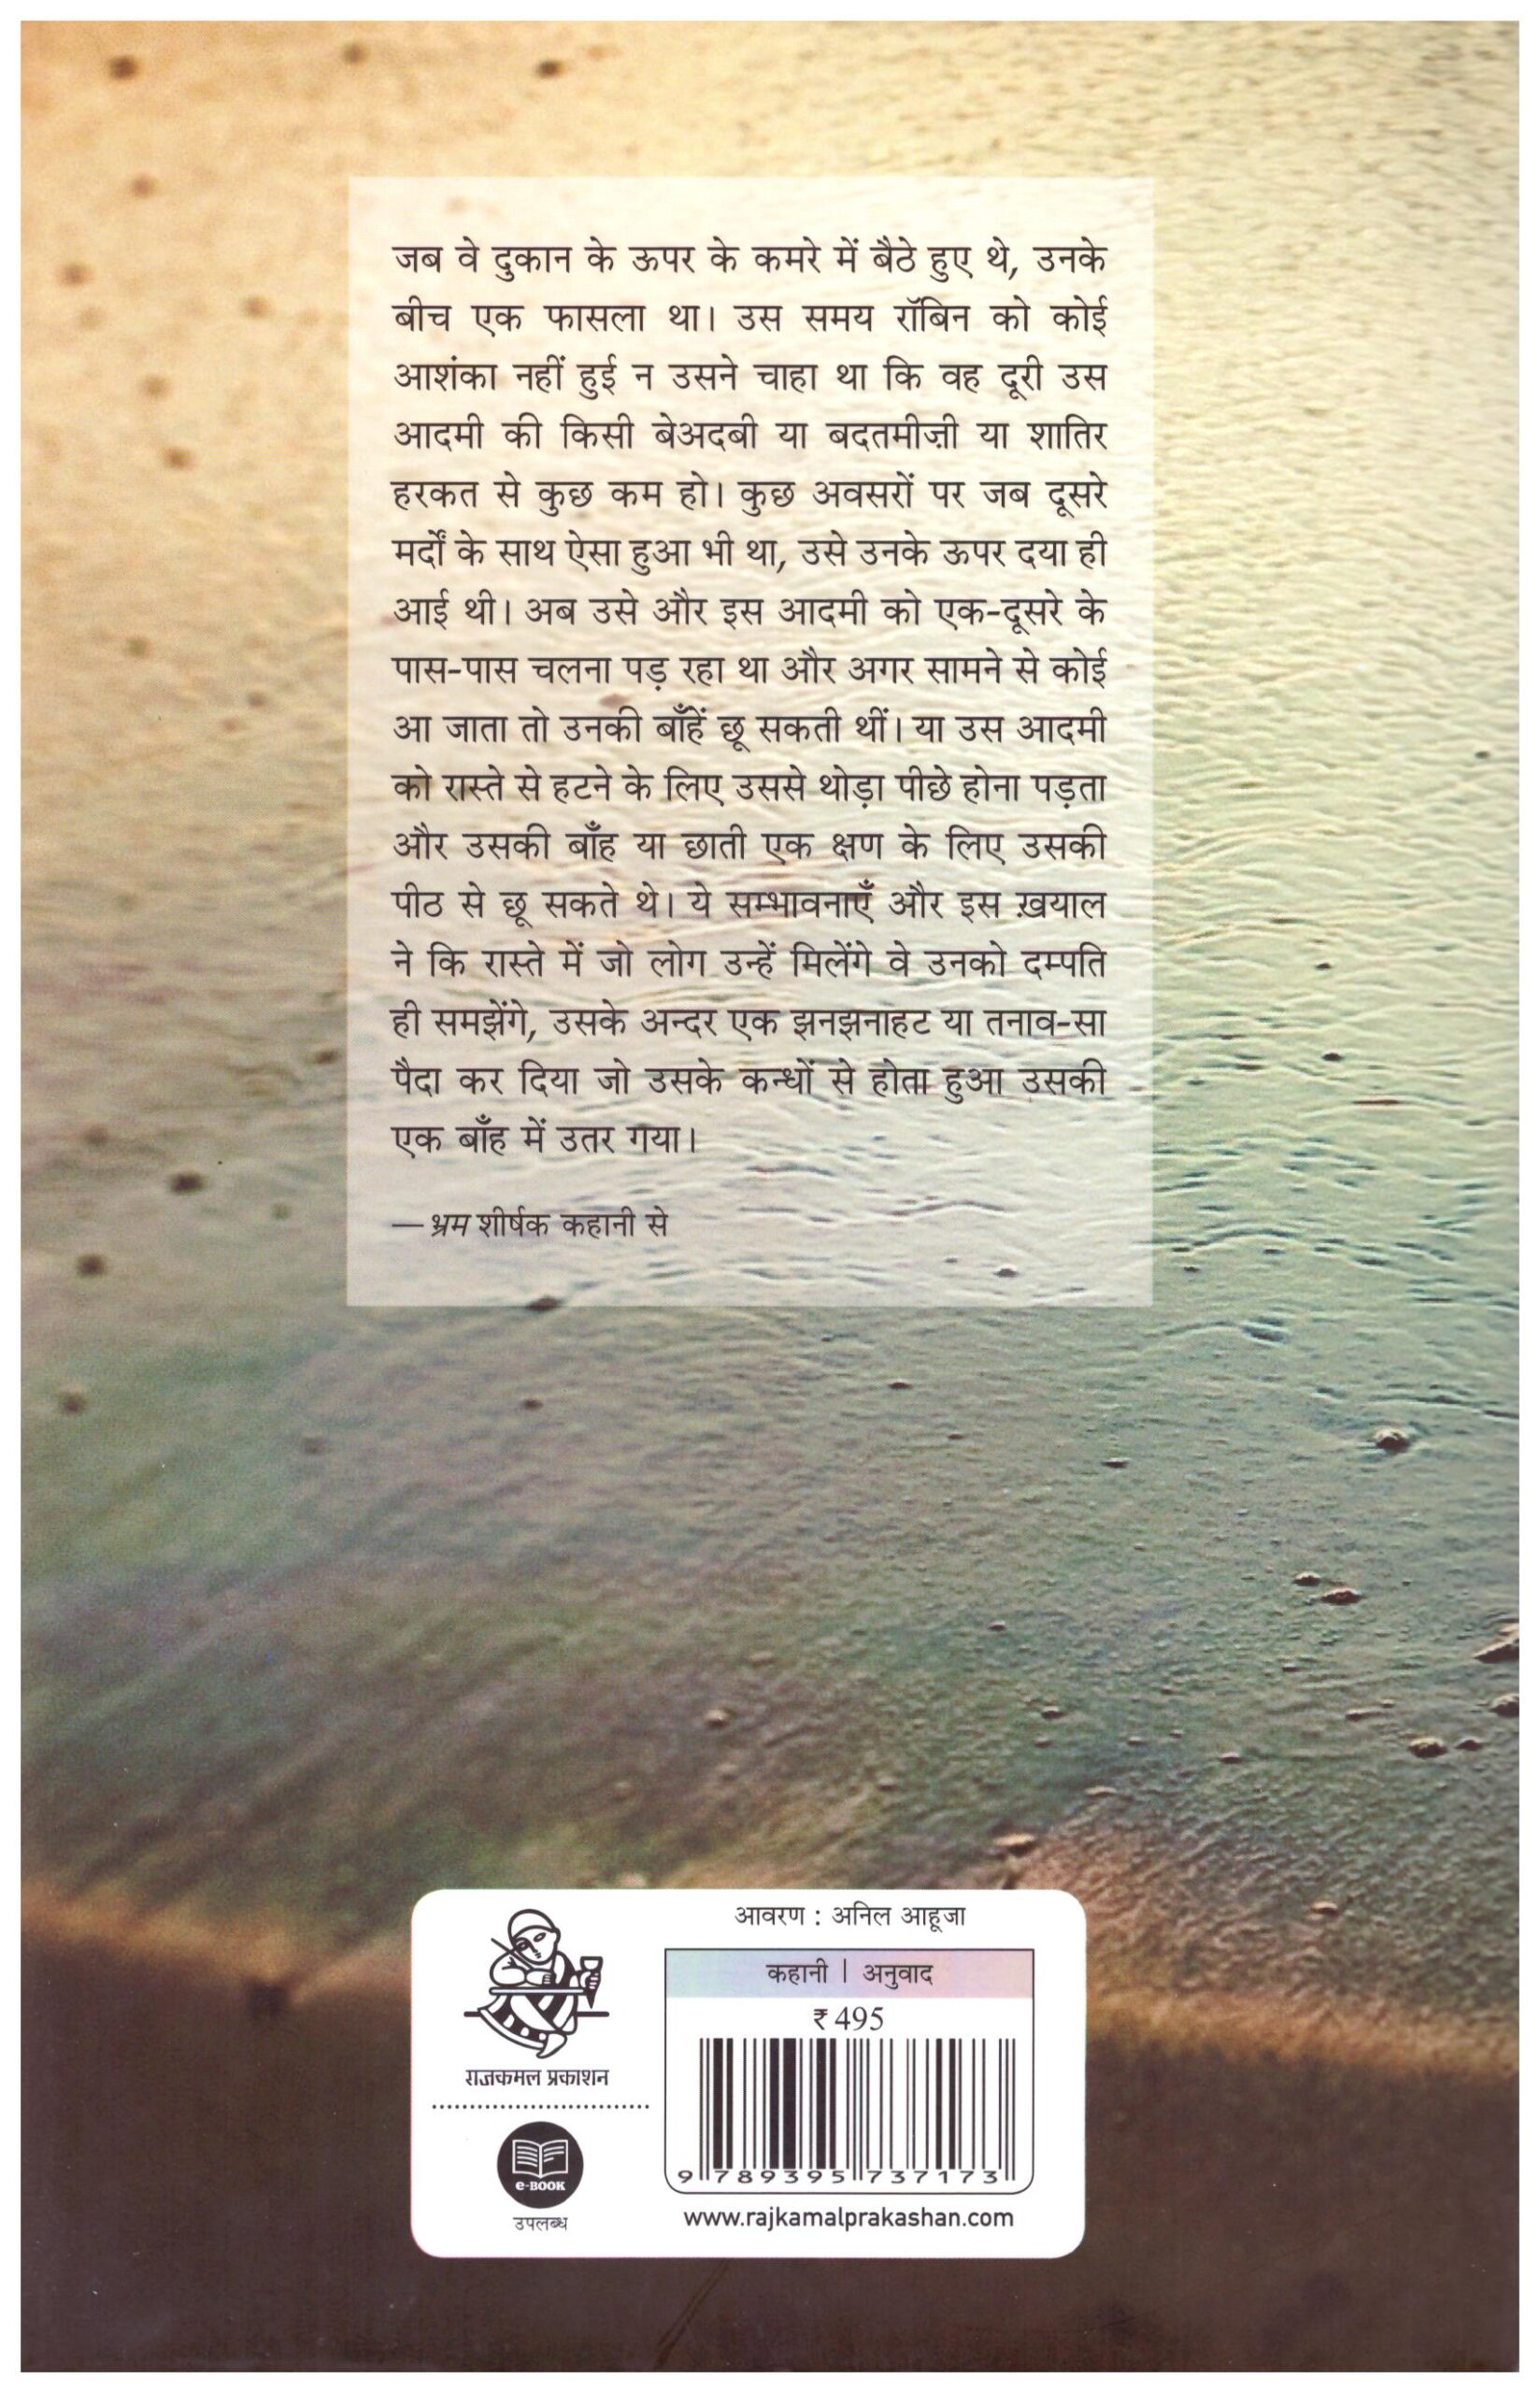 जब वे दुकान के ऊपर के कमरे में बैठे हुए थे, उनके
बीच एक फासला था। उस समय रॉबिन को कोई
आशंका नहीं हुई न उसने चाहा था कि वह दूरी उस
आदमी की किसी बेअदबी या बदतमीज़ी या शातिर
हरकत से कुछ कम हो। कुछ अवसरों पर जब दूसरे
मर्दों के साथ ऐसा हुआ भी था, उसे उनके ऊपर दया ही
आई थी। अब उसे और इस आदमी को एक-दूसरे के
पास-पास चलना पड़ रहा था और अगर सामने से कोई
आ जाता तो उनकी बाँहें छू सकती थीं। या उस आदमी
को रास्ते से हटने के लिए उससे थोड़ा पीछे होना पड़ता
और उसकी बाँह या छाती एक क्षण के लिए उसकी
पीठ से छू सकते थे। ये सम्भावनाएँ और इस ख़याल
ने कि रास्ते में जो लोग उन्हें मिलेंगे वे उनको दम्पति
ही समझेंगे, उसके अन्दर एक झनझनाहट या तनाव-सा
पैदा कर दिया जो उसके कन्धों से होता हुआ उसकी
एक बाँह में उतर गया।
—भ्रम शीर्षक कहानी से
राजकमल प्रकाशन
e-BOOK
उपलब्ध
आवरण : अनिल आहूजा
कहानी | अनुवाद
₹ 495
9 789395 737173
www.rajkamalprakashan.com